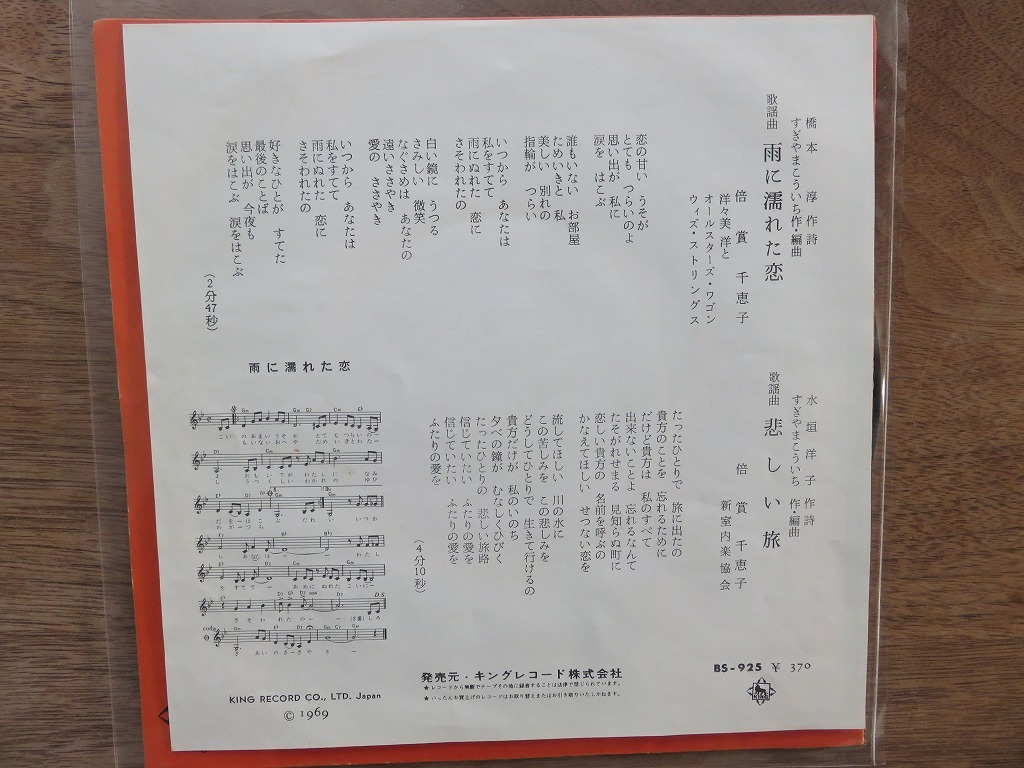 橋本 淳 作詩
すぎやまこういち作・編曲
歌謡曲 雨に濡れた恋
倍賞 千恵子
洋々美 洋と
オールスターズ・ワゴン
ウィズ・ストリングス
恋の甘い うそが
とても つらいのよ
思い出が 私に
涙を はこぶ
誰もいない お部屋
ためいきと 私
美しい 別れの
指輪が つらい
いつから あなたは
私をすてて
雨にぬれた 恋に
さそわれたの
白い鏡に うつる
さみしい 微笑
なぐさめは あなたの
遠いささやき
愛の ささやき
いつから あなたは
私をすてて
雨にぬれた 恋に
さそわれたの
好きなひとが すてた
最後のことば
思い出が 今夜も
涙をはこぶ 涙をはこぶ
(2分47秒)
水垣洋子 作詩
すぎやまこういち 作・編曲
歌謡曲 悲しい旅
倍賞 千恵子
新室内楽協会
たったひとりで 旅に出たの
貴方のことを 忘れるために
だけど貴方は 私のすべて
出来ないことよ 忘れるなんて
たそがれせまる 見知らぬ町に
恋しい貴方の 名前を呼ぶの
かなえてほしい せつない恋を
流してほしい 川の水に
この苦しみを この悲しみを
どうしてひとりで 生きて行けるの
貴方だけが 私のいのち
夕べの鐘が むなしくひびく
たったひとりの 悲しい旅路
信じていたい ふたりの愛を
信じていたい ふたりの愛を
ふたりの愛を
(4分10秒)
雨に濡れた恋
KING RECORD CO., LTD. Japan
© 1969
発売元・キングレコード株式会社
★レコードから無断でテープその他に録音することは法律で禁じられています。
★いったんお買上げのレコードはお取り替えまたはお引き取りいたしかねます。
BS-925 ¥ 370
KING